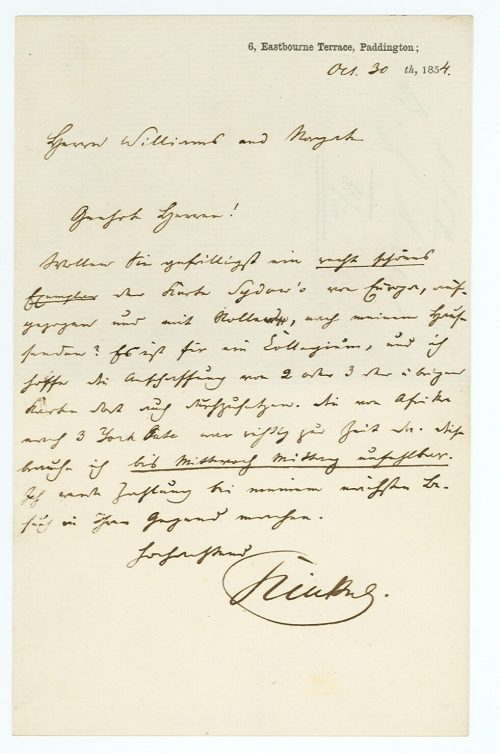 6, Eastbourne Terrace, Paddington;
Oct. 30 th, 1854.
Herren Williams and Norgate
Geehrte Herren!
Wollen Sie gefälligst ein recht schönes
Exemplar der Karte Sydow's von Europa, auf-
gezogen und mit Rollen, nach meinem Hause
senden? Es ist für ein Collegium, und ich
hoffe die Anschaffung von 2 oder 3 der übrigen
Karten dort auch durchzusetzen. Die von Afrika
nach 3 York Gate war richtig zur Zeit da. Diese
brauche ich bis Mittwoch Mittag unfehlbar.
Ich werde Zahlung bei meinem nächsten Be-
such in Ihrer Gegend machen.
Hochachtend
Kinkel.